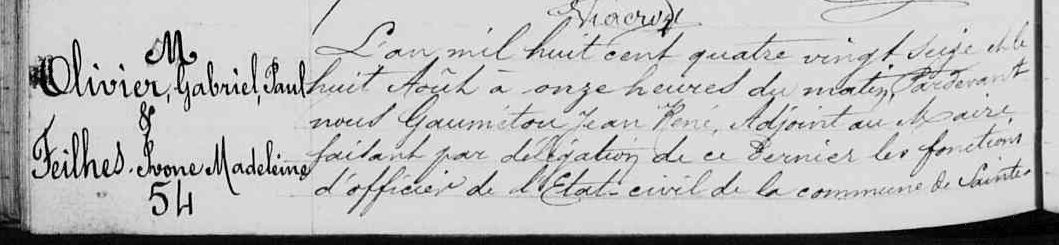 M
Olivier, Gabriel, Paul
&
Feilhes. Ivone Madeleine
54
L'an mil huit cent quatre vingt seize et le
huit Août à onze heures du matin, Pardevant
nous Gaumétou Jean René, Adjoint au Maire
faisant par délégation de ce dernier les fonctions
d'officier de l'Etat-civil de la commune de Sainte-